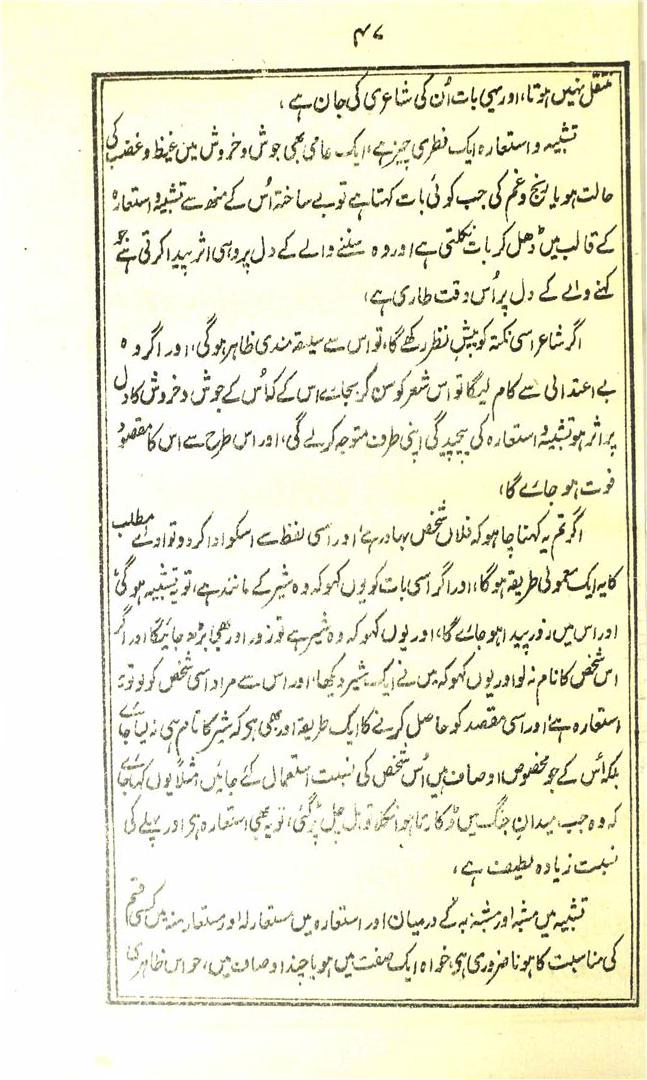 ۴۷
منتقل نہیں ہوتا، اور یہی بات اُن کی شاعری کی جان ہے،
تشبیہ و استعارہ ایک فطری چیز ہے، ایک عامی بھی جوش و خروش میں غیظ و غضب کی
حالت ہو یا رنج و غم کی جب کوئی بات کہتا ہے تو بے ساختہ اُس کے منھ سے تشبیہ و استعارہ
کے قالب میں ڈھل کر بات نکلتی ہے اور وہ سننے والے کے دل پر وہی اثر پیدا کرتی ہے جو
کہنے والے کے دل پر اُس وقت طاری ہے،
اگر شاعر اسی نکتہ کو پیشِ نظر رکھے گا، تو اس سے سلیقہ مندی ظاہر ہوگی، اور اگر وہ
بے اعتدالی سے کام لیگا تو اس شعر کو سن کر بجائے اس کے کہ اُس کے جوش و خروش کا دل
پر اثر ہو تشبیہ و استعارہ کی پیچیدگی اپنی طرف متوجہ کرلے گی، اور اس طرح سے اس کا مقصود
فوت ہو جائے گا،
اگر تم یہ کہنا چاہو کہ فلاں شخص بہادر ہے، اور اسی لفظ سے اسکو ادا کردو تو ادائے مطلب
کا یہ ایک معمولی طریقہ ہوگا، اور اگر اسی بات کو یوں کہو کہ وہ شیر کے مانند ہے، تو یہ تشبیہ ہوگی
اور اس میں زور پیدا ہو جائے گا، اور یوں کہو کہ وہ شیر ہے تو زور اور بھی بڑھ جائیگا اور اگر
اس شخص کا نام نہ لو اور یوں کہو کہ میں نے ایک شیر دیکھا، اور اس سے مراد اسی شخص کو لو تو یہ
استعارہ ہے، اور اسی مقصد کو حاصل کرنے کا ایک طریقہ اور بھی ہے کہ شیر کا نام ہی نہ لیا جائے
بلکہ اُس کے جو مخصوص اوصاف ہیں اُس شخص کی نسبت استعمال کئے جائیں، مثلاً یوں کہا جائے
کہ وہ جب میدانِ جنگ میں ڈکارتا ہوا نکلا تو ہل چل پڑ گئی، تو یہ بھی استعارہ ہے اور پہلے کی
نسبت زیادہ لطیف ہے،
تشبیہ میں مشبہ اور مشبہ بہ کے درمیان اور استعارہ میں مستعار لہ اور مستعار منہ میں کسی قسم
کی مناسبت کا ہونا ضروری ہے، خواہ ایک صفت میں ہو یا چند اوصاف میں، حواس ظاہری